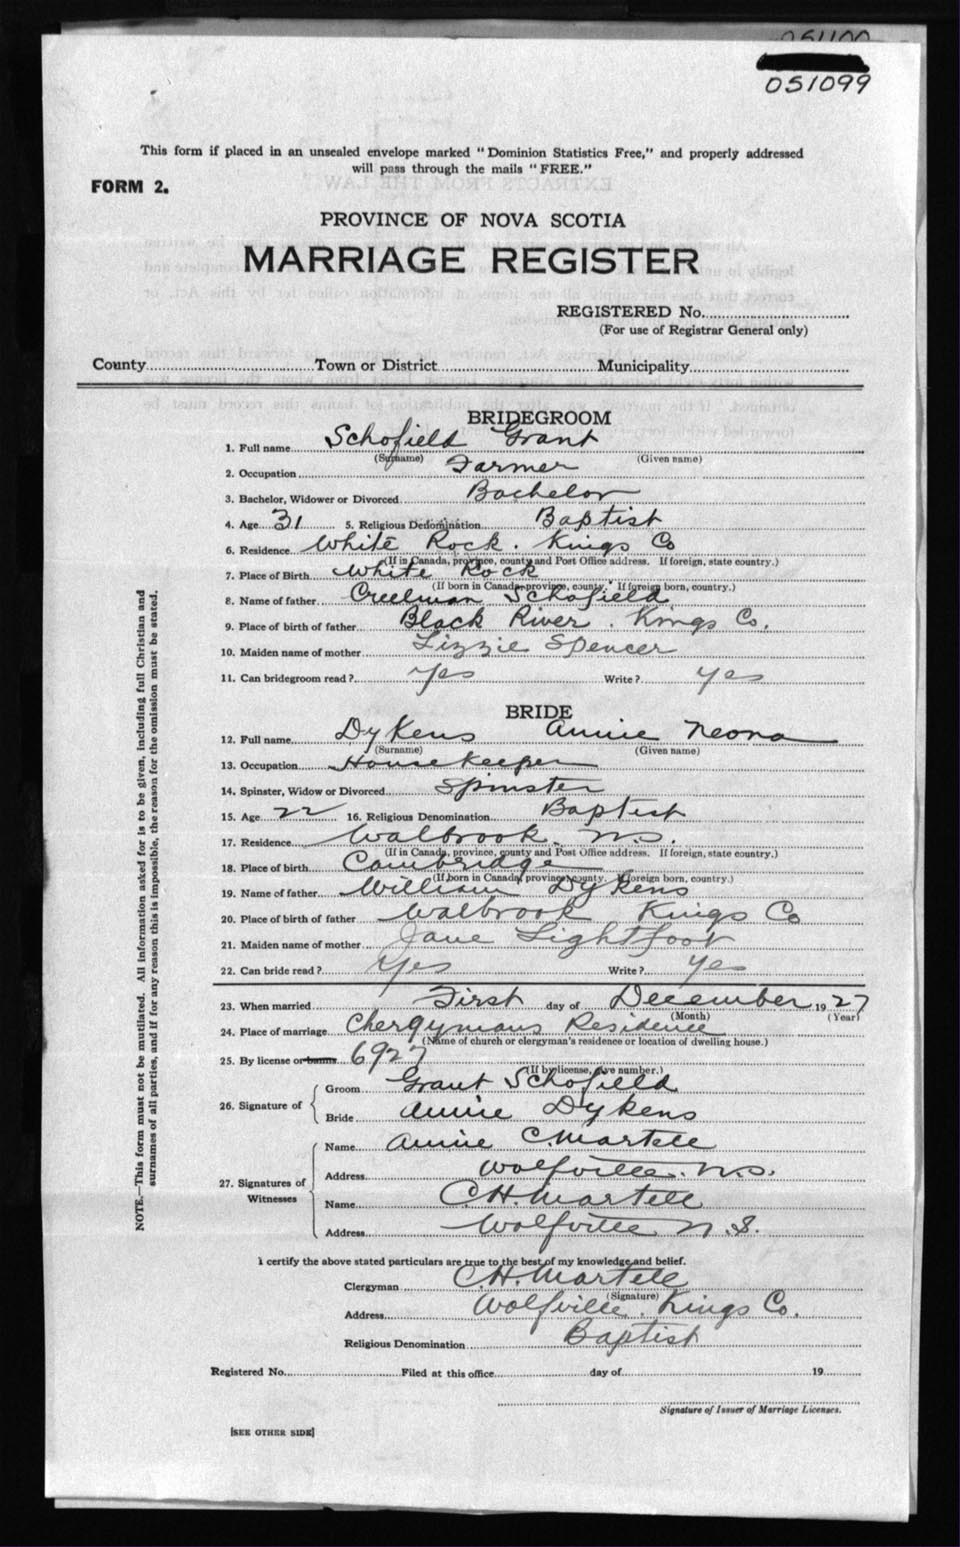 051100
051099
This form if placed in an unsealed envelope marked "Dominion Statistics Free," and properly addressed
will pass through the mails "FREE."
FORM 2.
PROVINCE OF NOVA SCOTIA
MARRIAGE REGISTER
REGISTERED No.
(For use of Registrar General only)
County Town or District Municipality
BRIDEGROOM
1. Full name Schofield Grant
(Surname) (Given name)
2. Occupation Farmer
3. Bachelor, Widower or Divorced Bachelor
4. Age 31 5. Religious Dedomination Baptist
6. Residence White Rock. Kings Co
(If in Canada, province, county and Post Office address. If foreign, state country.)
7. Place of Birth White Rock
(If born in Canada, province, county. If foreign born, country.)
8. Name of father Creelman Schofield
9. Place of birth of father Black River. Kings Co.
10. Maiden name of mother Lizzie Spencer
11. Can bridegroom read? Yes Write? yes
BRIDE
12. Full name Dykens Annie Neona
(Surname) (Given name)
13. Occupation Housekeeper
14. Spinster, Widow or Divorced Spinster
15. Age 22 16. Religious Denomination Baptist
17. Residence Walbrook. N.S.
(If in Canada, province, county and Post Office address. If foreign, state country.)
18. Place of birth Cambridge
(If born in Canada, province, county. If foreign born, country.)
19. Name of father William Dykens
20. Place of birth of father Walbrook Kings Co
21. Maiden name of mother Jane Lightfoot
22. Can bride read? Yes Write? Yes
23. When married First day of December 1927
(Month) (Year)
24. Place of marriage Chergymans Residence
(Name of church or clergyman's residence or location of dwelling house.)
25. By license or banns 6927
(If by license, give number.)
26. Signature of Groom Grant Schofield
Bride Annie Dykens
27. Signatures of Witnesses Name Annie C. Martell
Address Wolfville. N.S.
Name C.H. Martell
Address Wolfville N.S.
I certify the above stated particulars are true to the best of my knowledge and belief.
Clergyman C.H. Martell
(Signature)
Address Wolfville. Kings Co.
Religious Denomination Baptist
Registered No. Filed at this office day of 19
Signature of Issuer of Marriage Licenses.
[SEE OTHER SIDE]
NOTE.—This form must not be mutilated. All information asked for is to be given, including full Christian and
surnames of all parties, and if for any reason this is impossible, the reason for the omission must be stated.